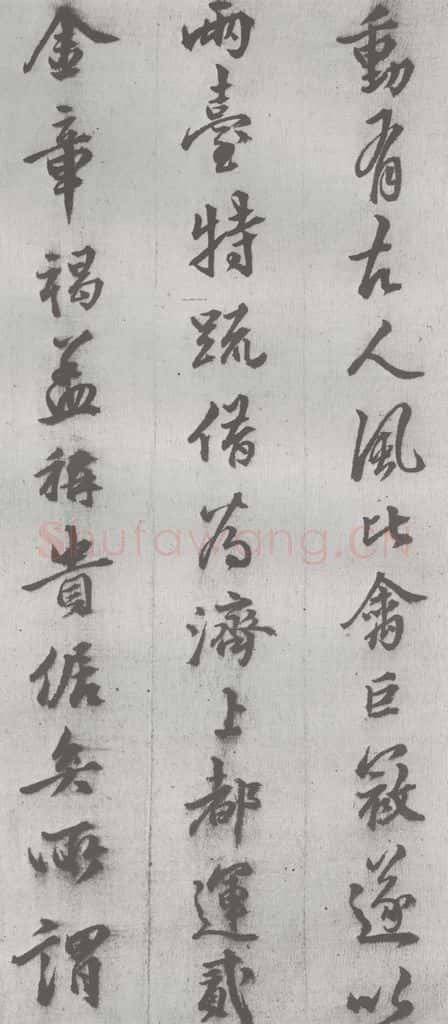 動有古人風比禽巨寇遂以
兩臺特疏借為濟上都運貳
金章褐盖稱貴倨矣所謂
Shufawang.cn